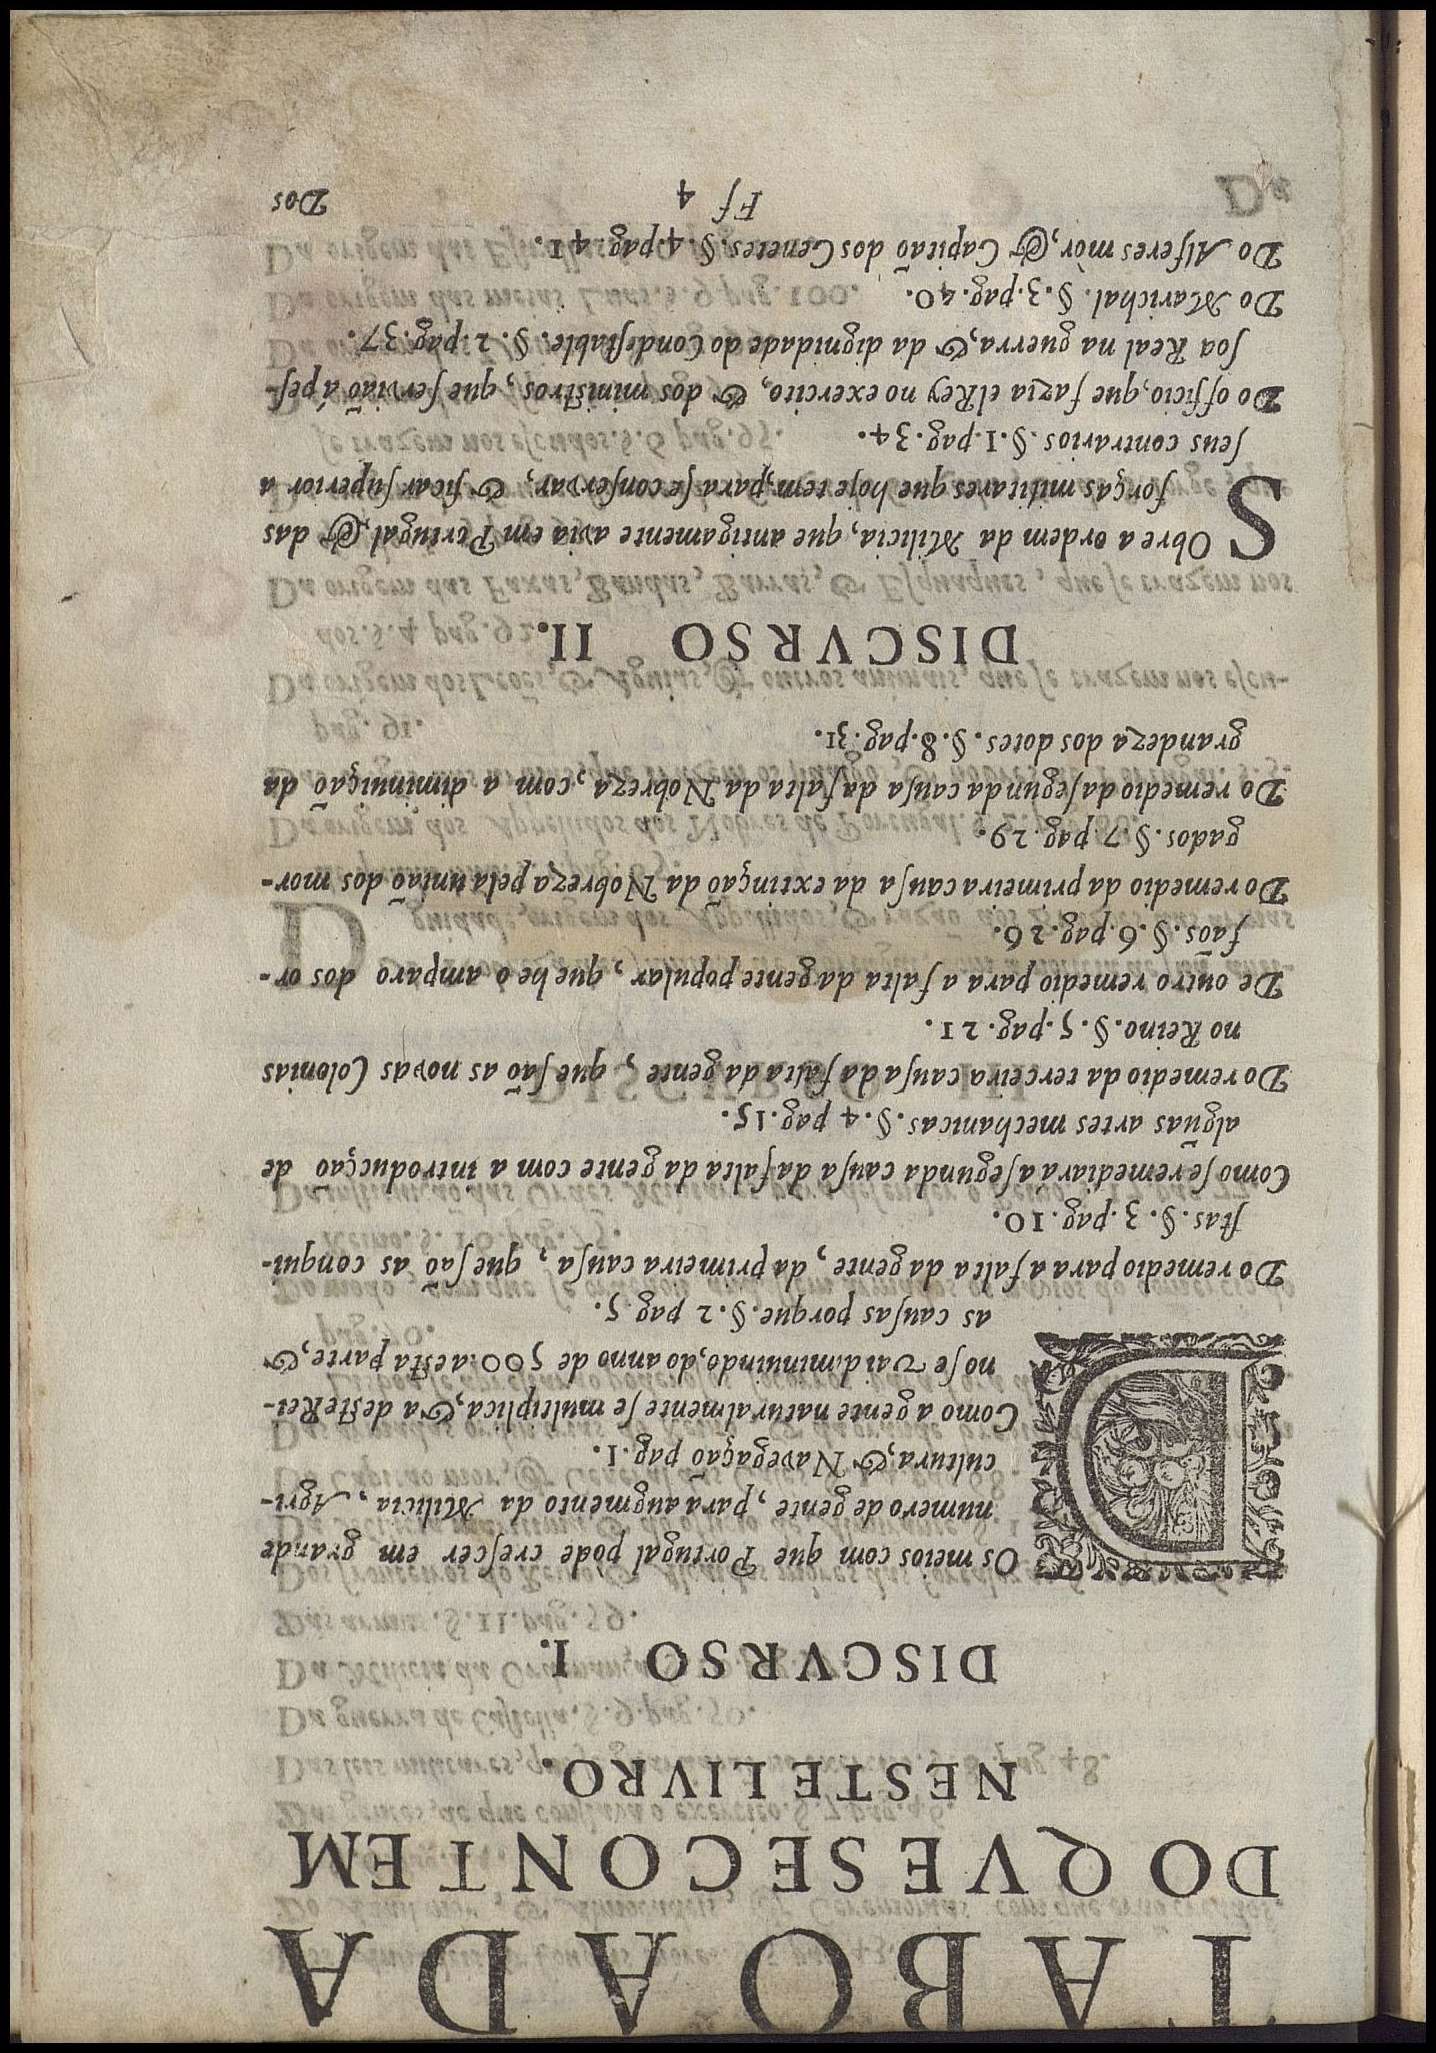 TABOADA
DO QVE SE CONTEM
NESTE LIVRO.
DISCVRSO I.
DOs meios com que Portugal póde creſcer em grande
numero de gente, para augmento da Milicia, Agri-
cultura, & Navegaçaõ pag. 1.
Como a gente naturalmente ſe multiplica, & a deſte Rei-
no ſe vai diminuindo, do anno de 500. a eſta parte, &
as cauſas porque. §. 2 pag. 5.
Do remedio para a falta da gente, da primeira cauſa, que ſaõ as conqui-
ſtas. §. 3. pag. 10.
Como ſe remediará a ſegunda cauſa da falta da gente com a introducçaõ de
algũas artes mechanicas. §. 4 pag. 15.
Do remedio da terceira cauſa da falta da gente, que ſaõ as novas Colonias
no Reino. §. 5. pag. 21.
De outro remedio para a falta da gente popular, que he o amparo dos or-
faõs. §. 6. pag. 26.
Do remedio da primeira cauſa da extinçaõ da Nobreza pela uniaõ dos mor-
gados. §. 7. pag. 29.
Do remedio da ſegunda cauſa da falta da Nobreza, com a diminuiçaõ da
grandeza dos dotes. §. 8. pag. 31.
DISCVRSO II.
SObre a ordem da Milicia, que antigamente avia em Portugal, & das
forças militares que hoje tem, para ſe conſervar, & ficar ſuperior a
ſeus contrarios. §. 1. pag. 34.
Do officio, que fazia elRey no exercito, & dos miniſtros, que ſerviaõ á peſ-
ſoa Real na guerra, & da dignidade do Condeſtable. §. 2. pag. 37.
Do Marichal. §. 3. pag. 40.
Do Alferes mòr, & Capitaõ dos Genetes. §. 4. pag. 41.
Ff 4
Dos